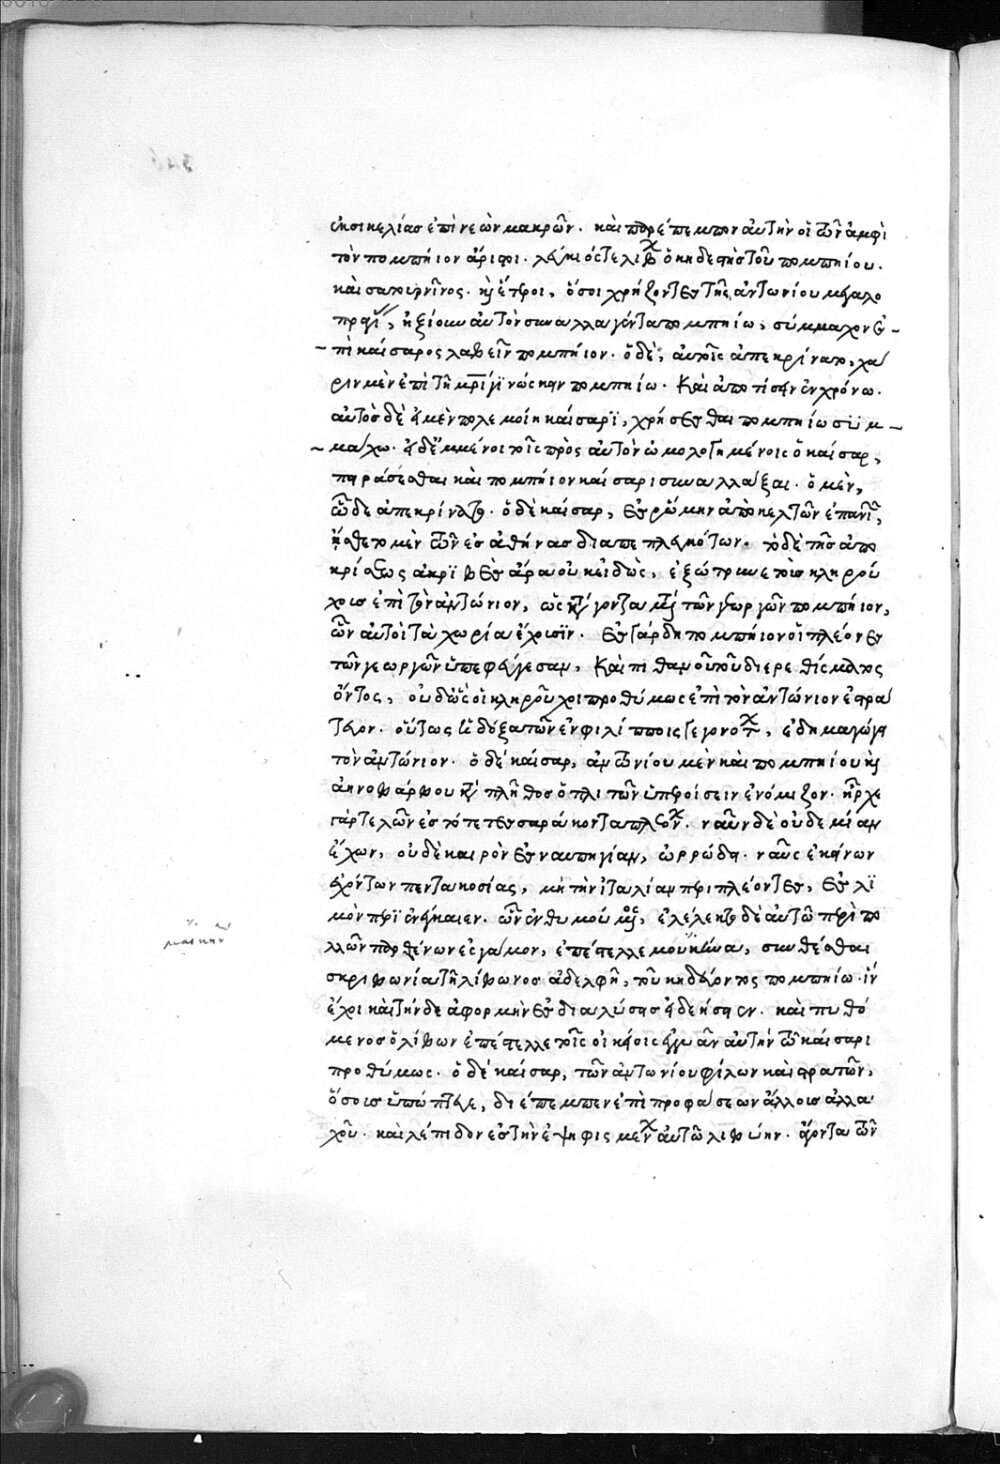 ἐκ σικελίας ἐπὶ νεῶν μακρῶν. καὶ προέπεμπον αὐτὴν οἱ τῶν ἀμφὶ
τὸν πομπήιον ἄριστοι. λεύκιός τε λίβων ὁ κηδεστὴς τοῦ πομπηίου.
καὶ σατουρνῖνος. καὶ ἕτεροι, ὅσοι χρήζοντες τῆς ἀντωνίου μεγαλο
πραξίας, ἠξίουν αὐτὸν συναλλαγέντα πομπηίω, σύμμαχον ἐ-
-πὶ καίσαρος λαβεῖν πομπήιον. ὁ δὲ, αὐτοῖς ἀπεκρίνατο, χά
ριν μὲν ἐπὶ τῆ μητρὶ γινώσκειν πομπηίω. καὶ ἀποτίσειν ἐν χρόνω.
αὐτὸς δὲ εἰ μὲν πολεμοίη καίσαρϊ, χρήσεσθαι πομπηίω συμ-
-μάχω. εἰ δὲ ἐμμένοι τοῖς πρὸς αὐτὸν ὡμολογημένοις ὁ καίσαρ,
πειράσεσθαι καὶ πομπήιον καίσαρι συναλλάξαι. ὁ μὲν,
ὧδε ἀπεκρίνατο. ὁ δὲ καίσαρ, ἐς ῥώμην ἀπὸ κελτῶν ἐπανιὼν,
ἤσθετο μὲν τῶν ἐς ἀθήνας διαπεπλευκότων. τὸ δὲ τῆς ἀπο
κρίσεως ἀκριβὲς ἄρα οὐκ εἰδὼς, ἐξώτρυνε τοὺς κληρού
χους ἐπὶ τὸν ἀντώνιον, ὡς κατάγοντα μετὰ τῶν γεωργῶν πομπήιον,
ὧν αὐτοὶ τὰ χωρία ἔχουσϊν. ἐς γὰρ δὴ πομπήιον οἱ πλέονες
τῶν γεωργῶν ὑπεφεύγεσαν. καὶ πιθανοῦ τοῦ διερεθίσματος
ὄντος, οὐδ᾽ ὣς οἱ κληροῦχοι προθύμως ἐπὶ τὸν ἀντώνιον ἐστρά
τευον. οὕτως ἡ δόξα τῶν ἐν φιλίπποις γεγονότων, ἐδημαγώγει
τὸν ἀντώνιον. ὁ δὲ καίσαρ, ἀντωνίου μὲν καὶ πομπηίου καὶ
ἀηνοβάρβου κατὰ πλῆθος ὁπλιτῶν ὑπεροίσειν ἐνόμιζον. ἦρχε
γὰρ τελῶν ἐς τότε τεσσαράκοντα πλεόνων. ναῦν δὲ οὐδεμίαν
ἔχων, οὐδὲ καιρὸν ἐς ναυπηγίαν, ὠρρώδει. ναῦς ἐκείνων
ἐχόντων πεντακοσίας, μὴ τὴν ἰταλίαν περιπλέοντες, ἐς λϊ
μὸν περϊενέγκαιεν. ὧν ἐνθυμούμενος, ἐλέλεκτο δὲ αὐτῶ περὶ πο
λλῶν παρθένων ἐς γάμον, ἐπέστελλε μουκίνα, συνθέσθαι
σκριβωνία τῆ λίβωνος ἀδελφῆ, τοῦ κηδεύοντος πομπηίω. ἵν
ἔχοι καὶ τήνδε ἀφορμὴν ἐς διαλύσεις εἰ δεήσειεν. καὶ πυθό
μενος ὁ λίβων ἐπέστελλε τοῖς οἰκείοις ἐγγυᾶν αὐτὴν τῶ καίσαρι
προθύμως. ὁ δὲ καίσαρ, τῶν ἀντωνίου φίλων καὶ στρατῶν,
ὅσους ὑπώπτευε, διέπεμπεν ἐπὶ προφάσεων ἄλλους ἀλλα
χοῦ. καὶ λέπιδον ἐς τὴν ἐψηφισμένην αὐτῶ λιβύην. ἄγοντα τῶν